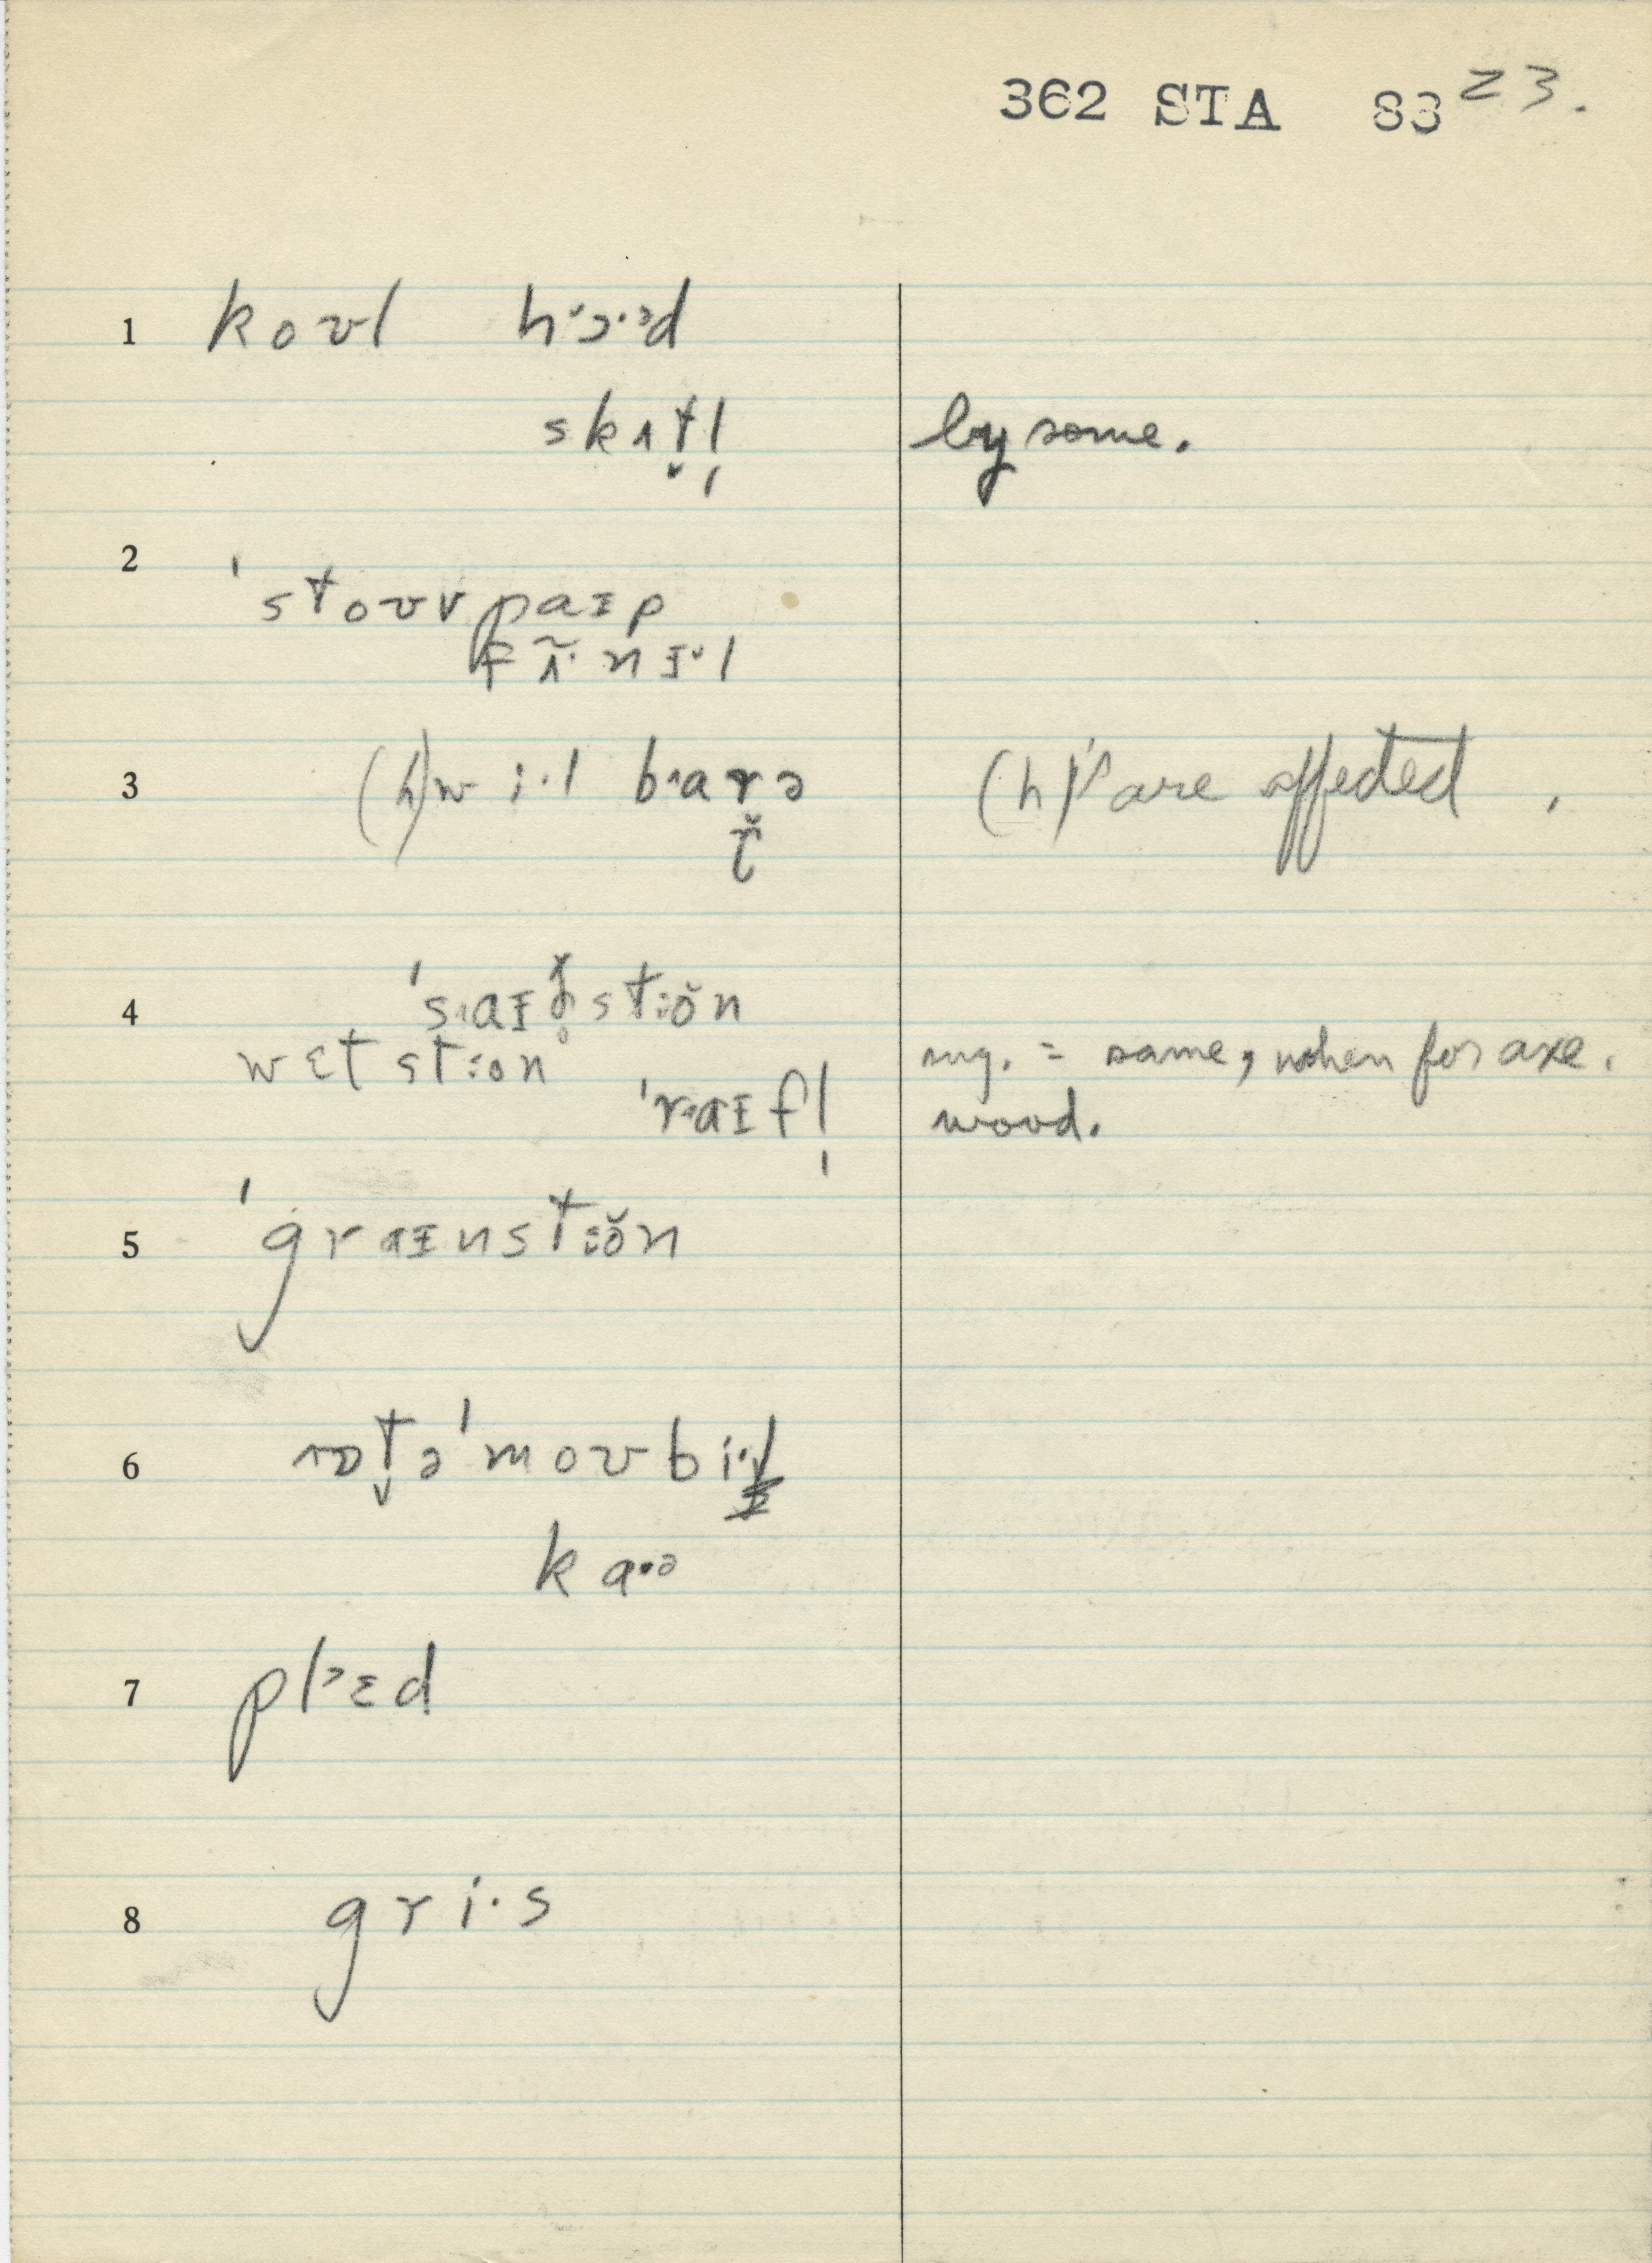 362 STA 83 23.
1 koʊl hɔ·ᵊd
skʌt̬l̩ by some.
2
ˈstoʊvpaɪp
fʌ̃·nɪ·l
3 (h)wi·l baɾə (h)'s are affected ,
ř
4 ˈsaɪð̥stŏn
wɛt ston mg. = same, when for axe.
ˈraɪfl̩ wood.
5 ˈgraɪnstŏn
6 ɒt̬əˈmoʊbil
ka·ə
7 plɛd
8 gri·s